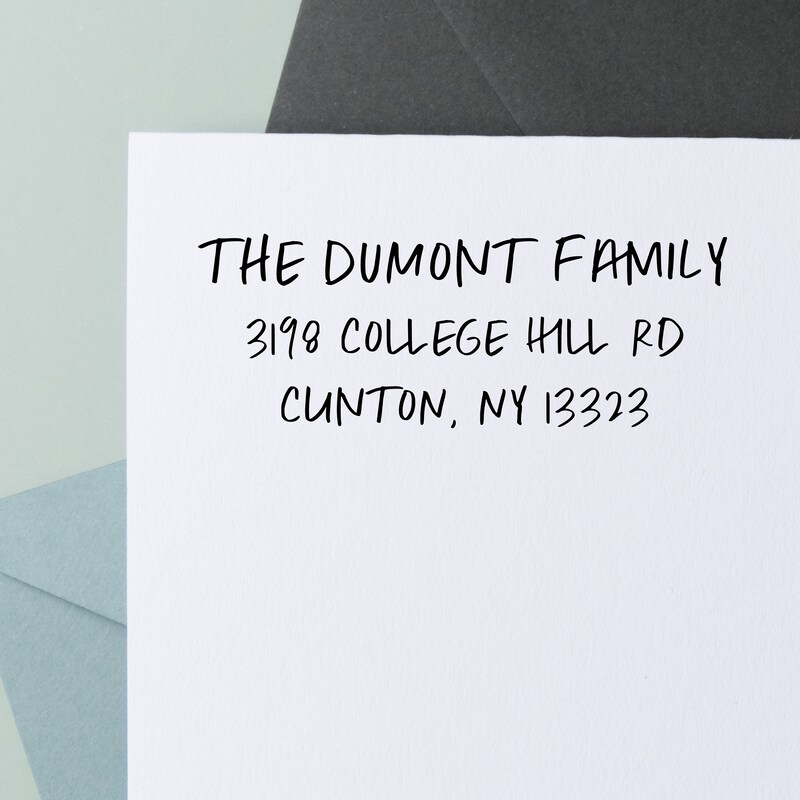 THE DUMONT FAMILY
3198 COLLEGE HILL RD
CLINTON, NY 13323